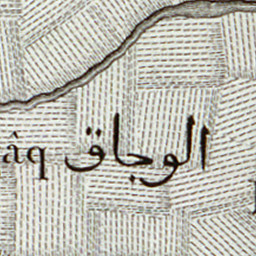 âq الوجاق